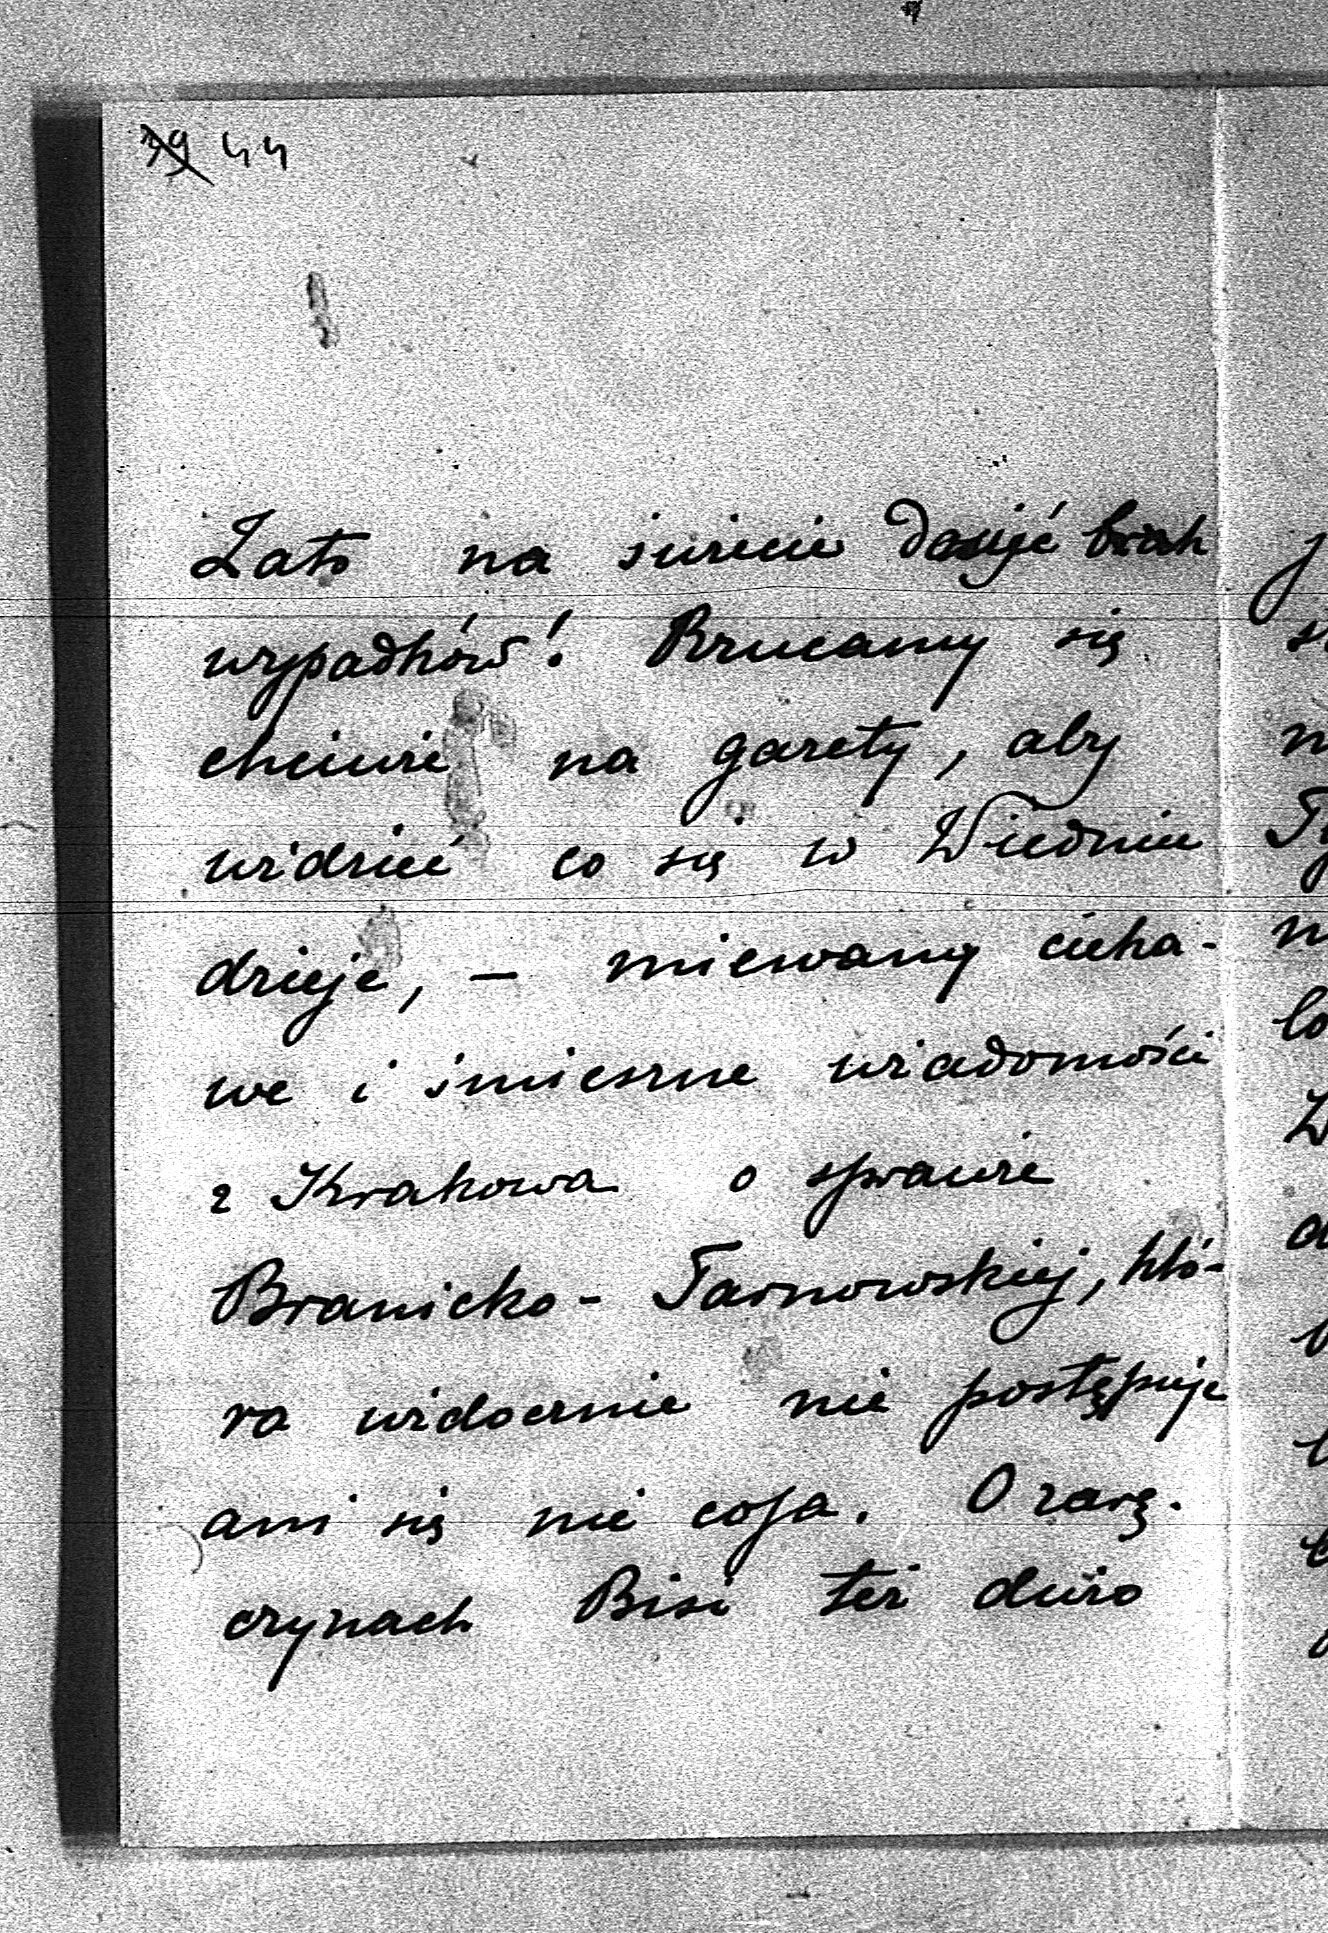 39 44
Zato na świecie dosyć brak
wypadków! Rzucamy się
chciwie na gazety, aby
widzieć co się w Wiedniu
dzieje, — miewamy cieka-
we i śmieszne wiadomości
z Krakowa o sprawie
Branicko-Tarnowskiej, któ-
ra widocznie nie postępuje
ani się nie cofa. O zarę-
czynach Bisi też dużo